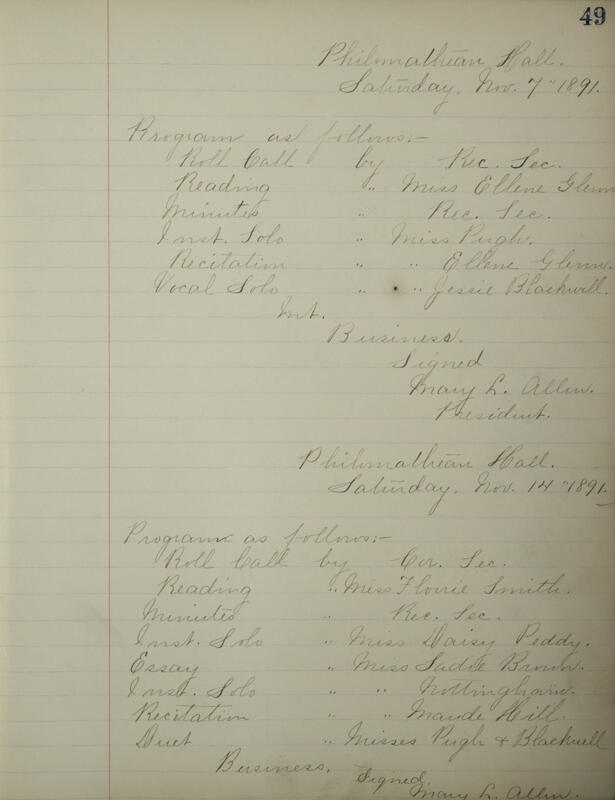 49
Philomathean Hall.
Saturday, Nov. 7" 1891.
Program as follows:-
Roll Call by Rec. Sec.
Reading " Miss Ellene Glenn
Minutes " Rec. Sec.
Inst. Solo " Miss Pugh.
Recitation " " Ellene Glenn.
Vocal Solo " " Jessie Blackwell.
Int.
Business.
Signed
Mary L. Allen.
President.
Philomathean Hall.
Saturday, Nov. 14" 1891.
Program as follows:-
Roll Call by Cor. Sec.
Reading " Miss Florrie Smith.
Minutes " Rec. Sec.
Inst. Solo " Miss Daisy Peddy.
Essay " Miss Sadie Brown.
Inst. Solo " " Nottingham.
Recitation " " Maude Hill.
Duet " Misses Pugh & Blackwell
Business.
Signed
Mary L. Allen.